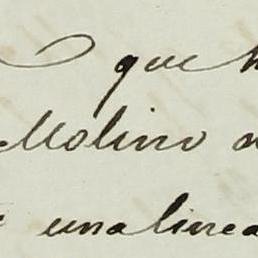 que
Molino
una linea